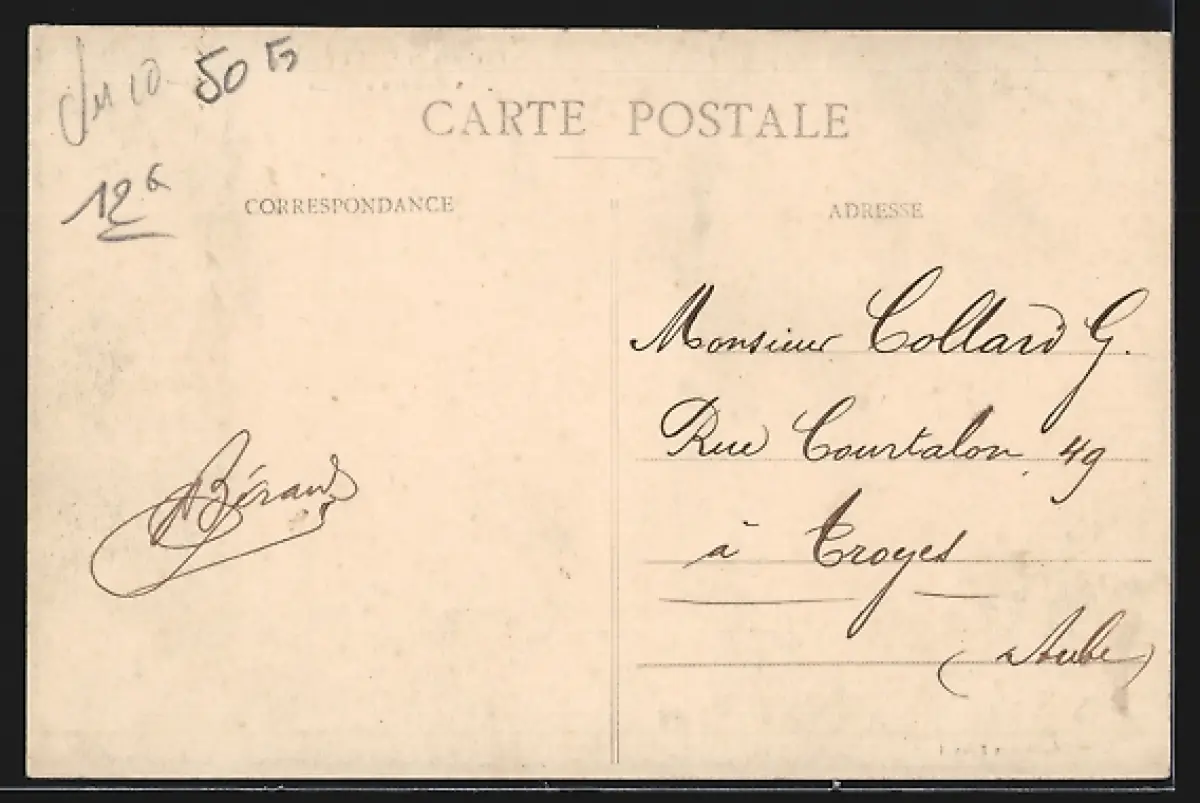 50
12
CARTE POSTALE
CORRESPONDANCE
ADRESSE
Monsieur Collard G.
Rue Courtalon 49
à Troyes
(Aube)
Béraud